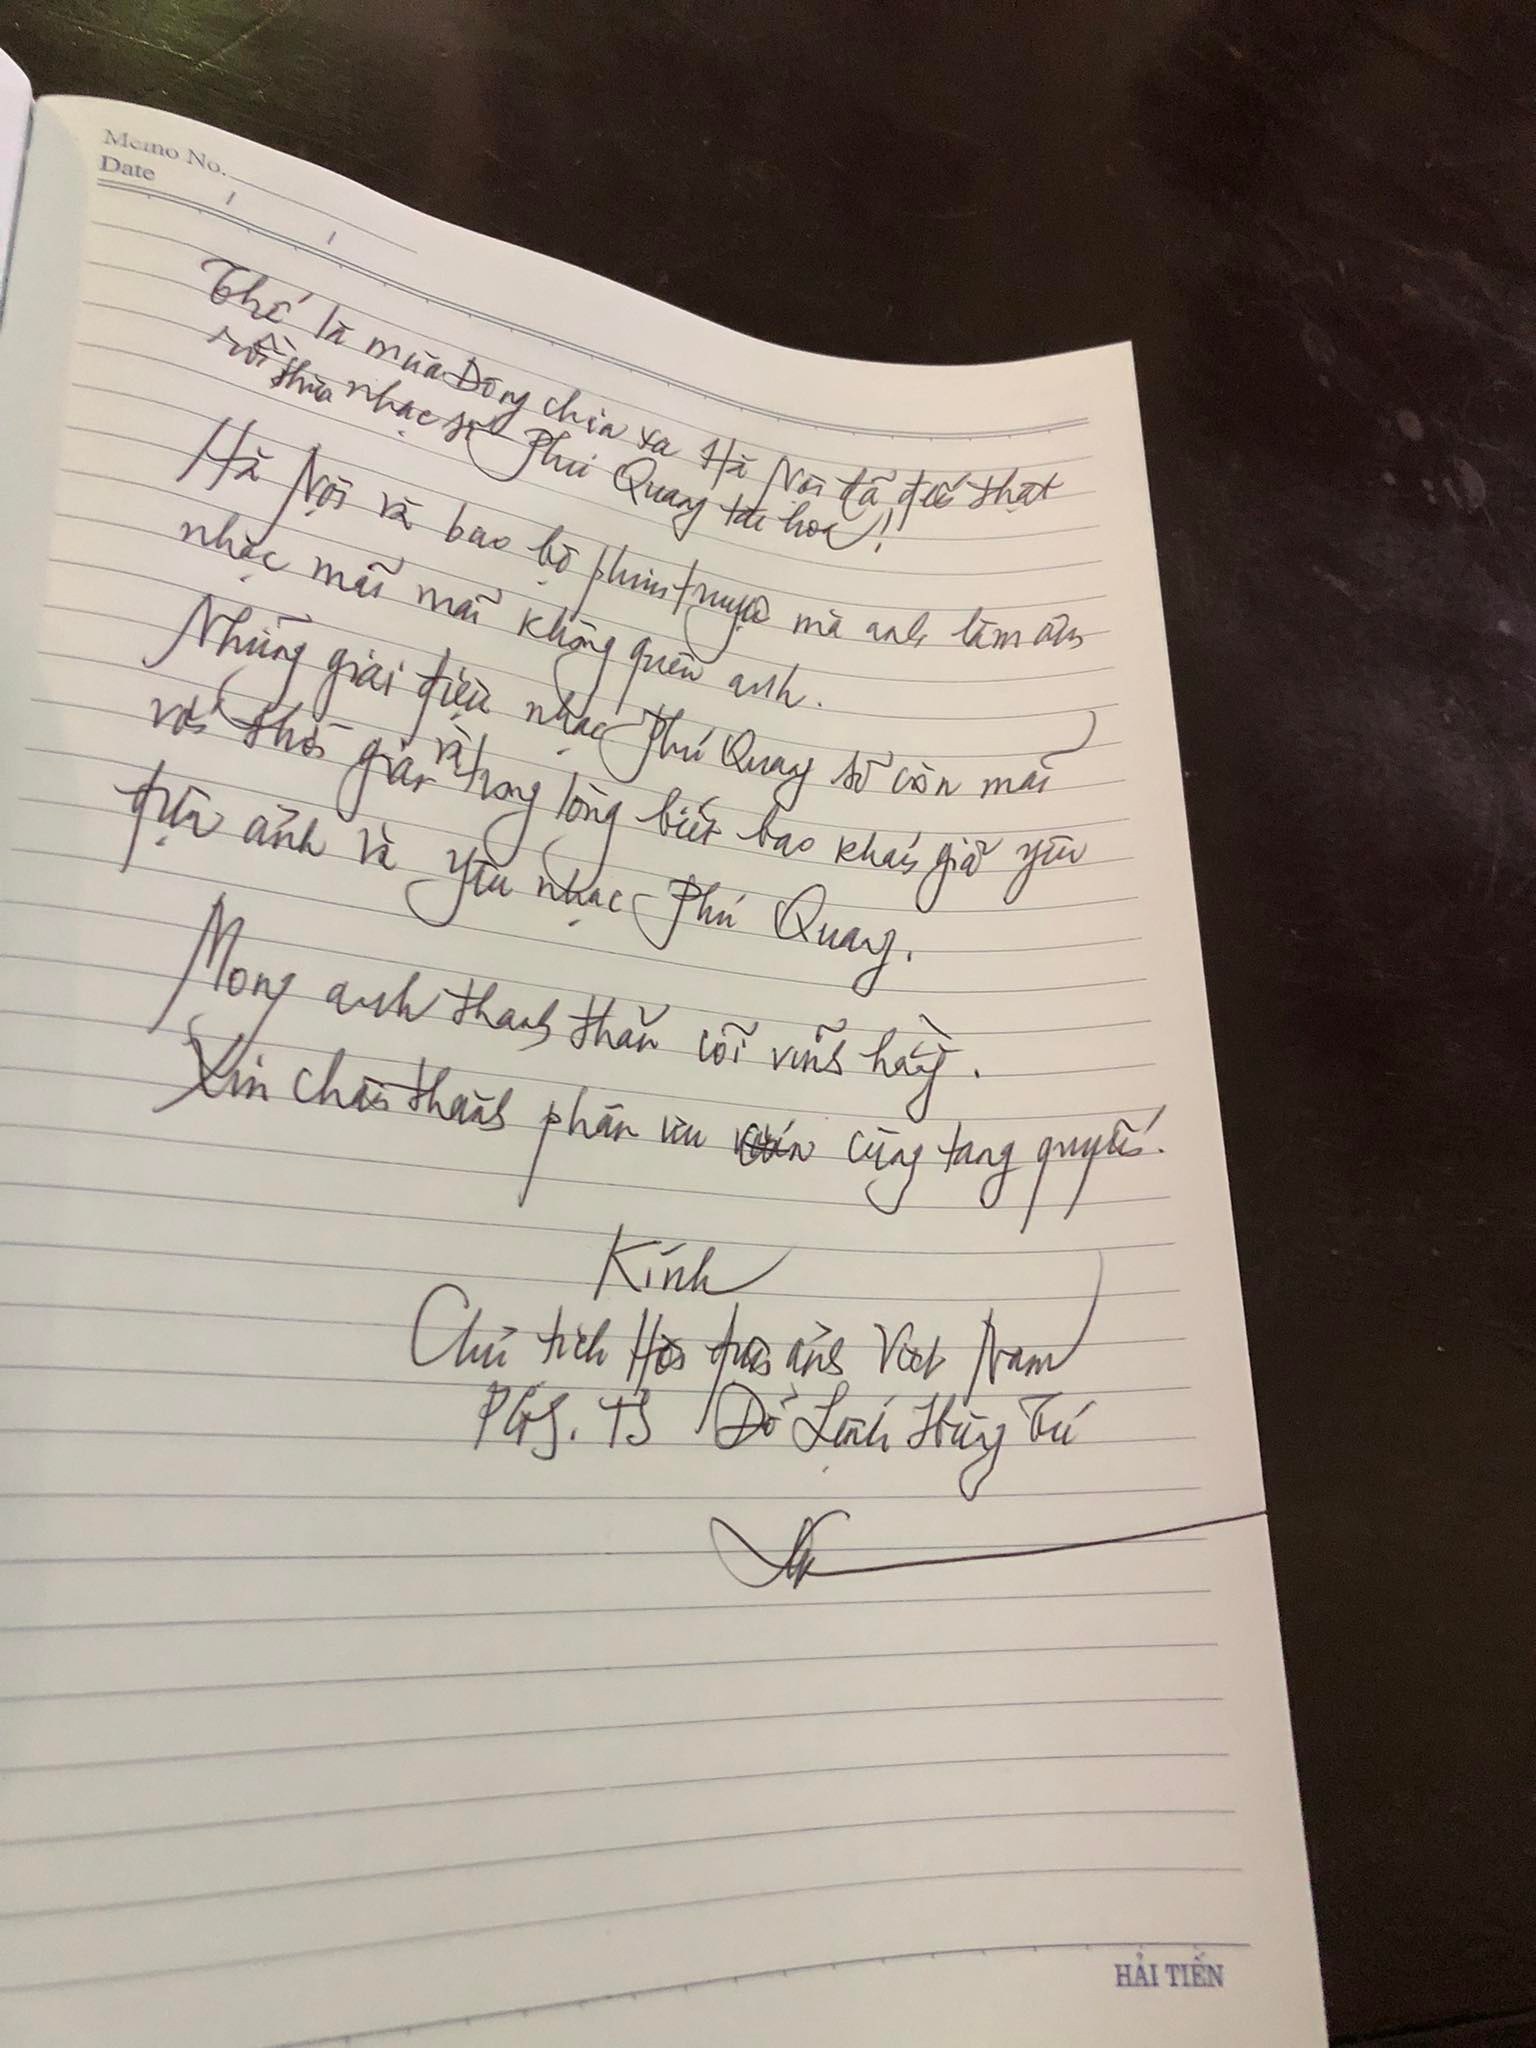 Memo No.
Date / /
Thế là mùa Đông chia xa Hà Nội đã đến thật
rồi thưa nhạc sĩ Phú Quang tài hoa!
Hà Nội và bao bộ phim truyện mà anh làm âm
nhạc mãi mãi không quên anh.
Những giai điệu nhạc Phú Quang sẽ còn mãi
với thời gian và trong lòng biết bao khán giả yêu
điện ảnh và yêu nhạc Phú Quang.
Mong anh thanh thản cõi vĩnh hằng.
Xin chân thành phân ưu cùng tang quyến.
Kính
Chủ tịch Hội điện ảnh Việt Nam
PGS. TS Đỗ Lệnh Hùng Tú
HẢI TIẾN